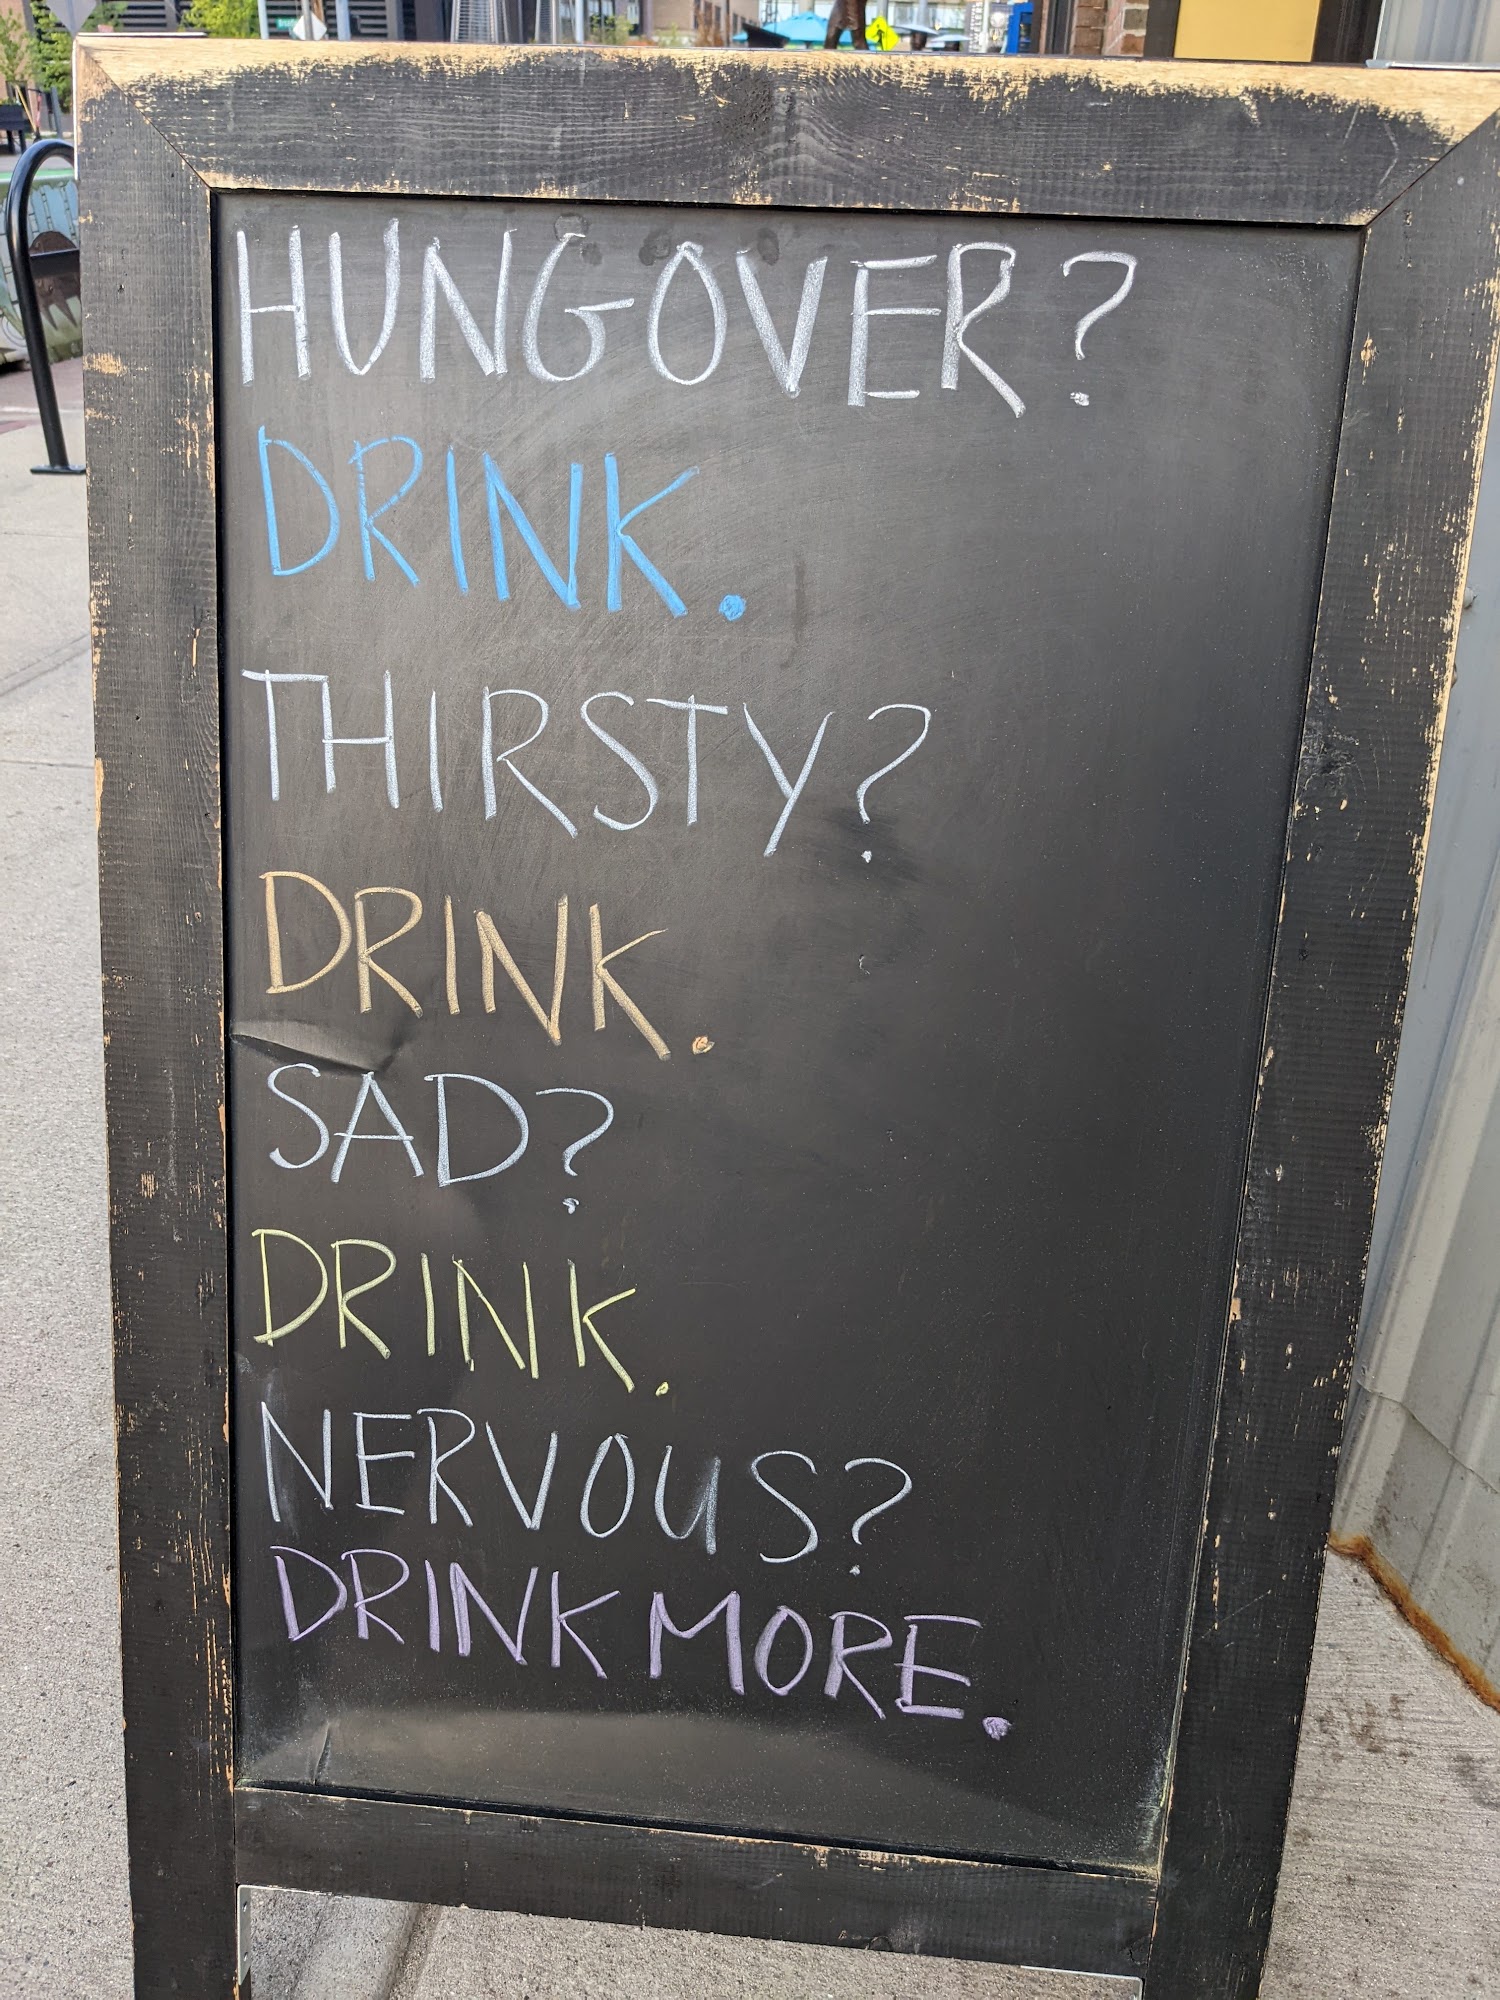 HUNGOVER?
DRINK.
THIRSTY?
DRINK.
SAD?
DRINK.
NERVOUS?
DRINK MORE.